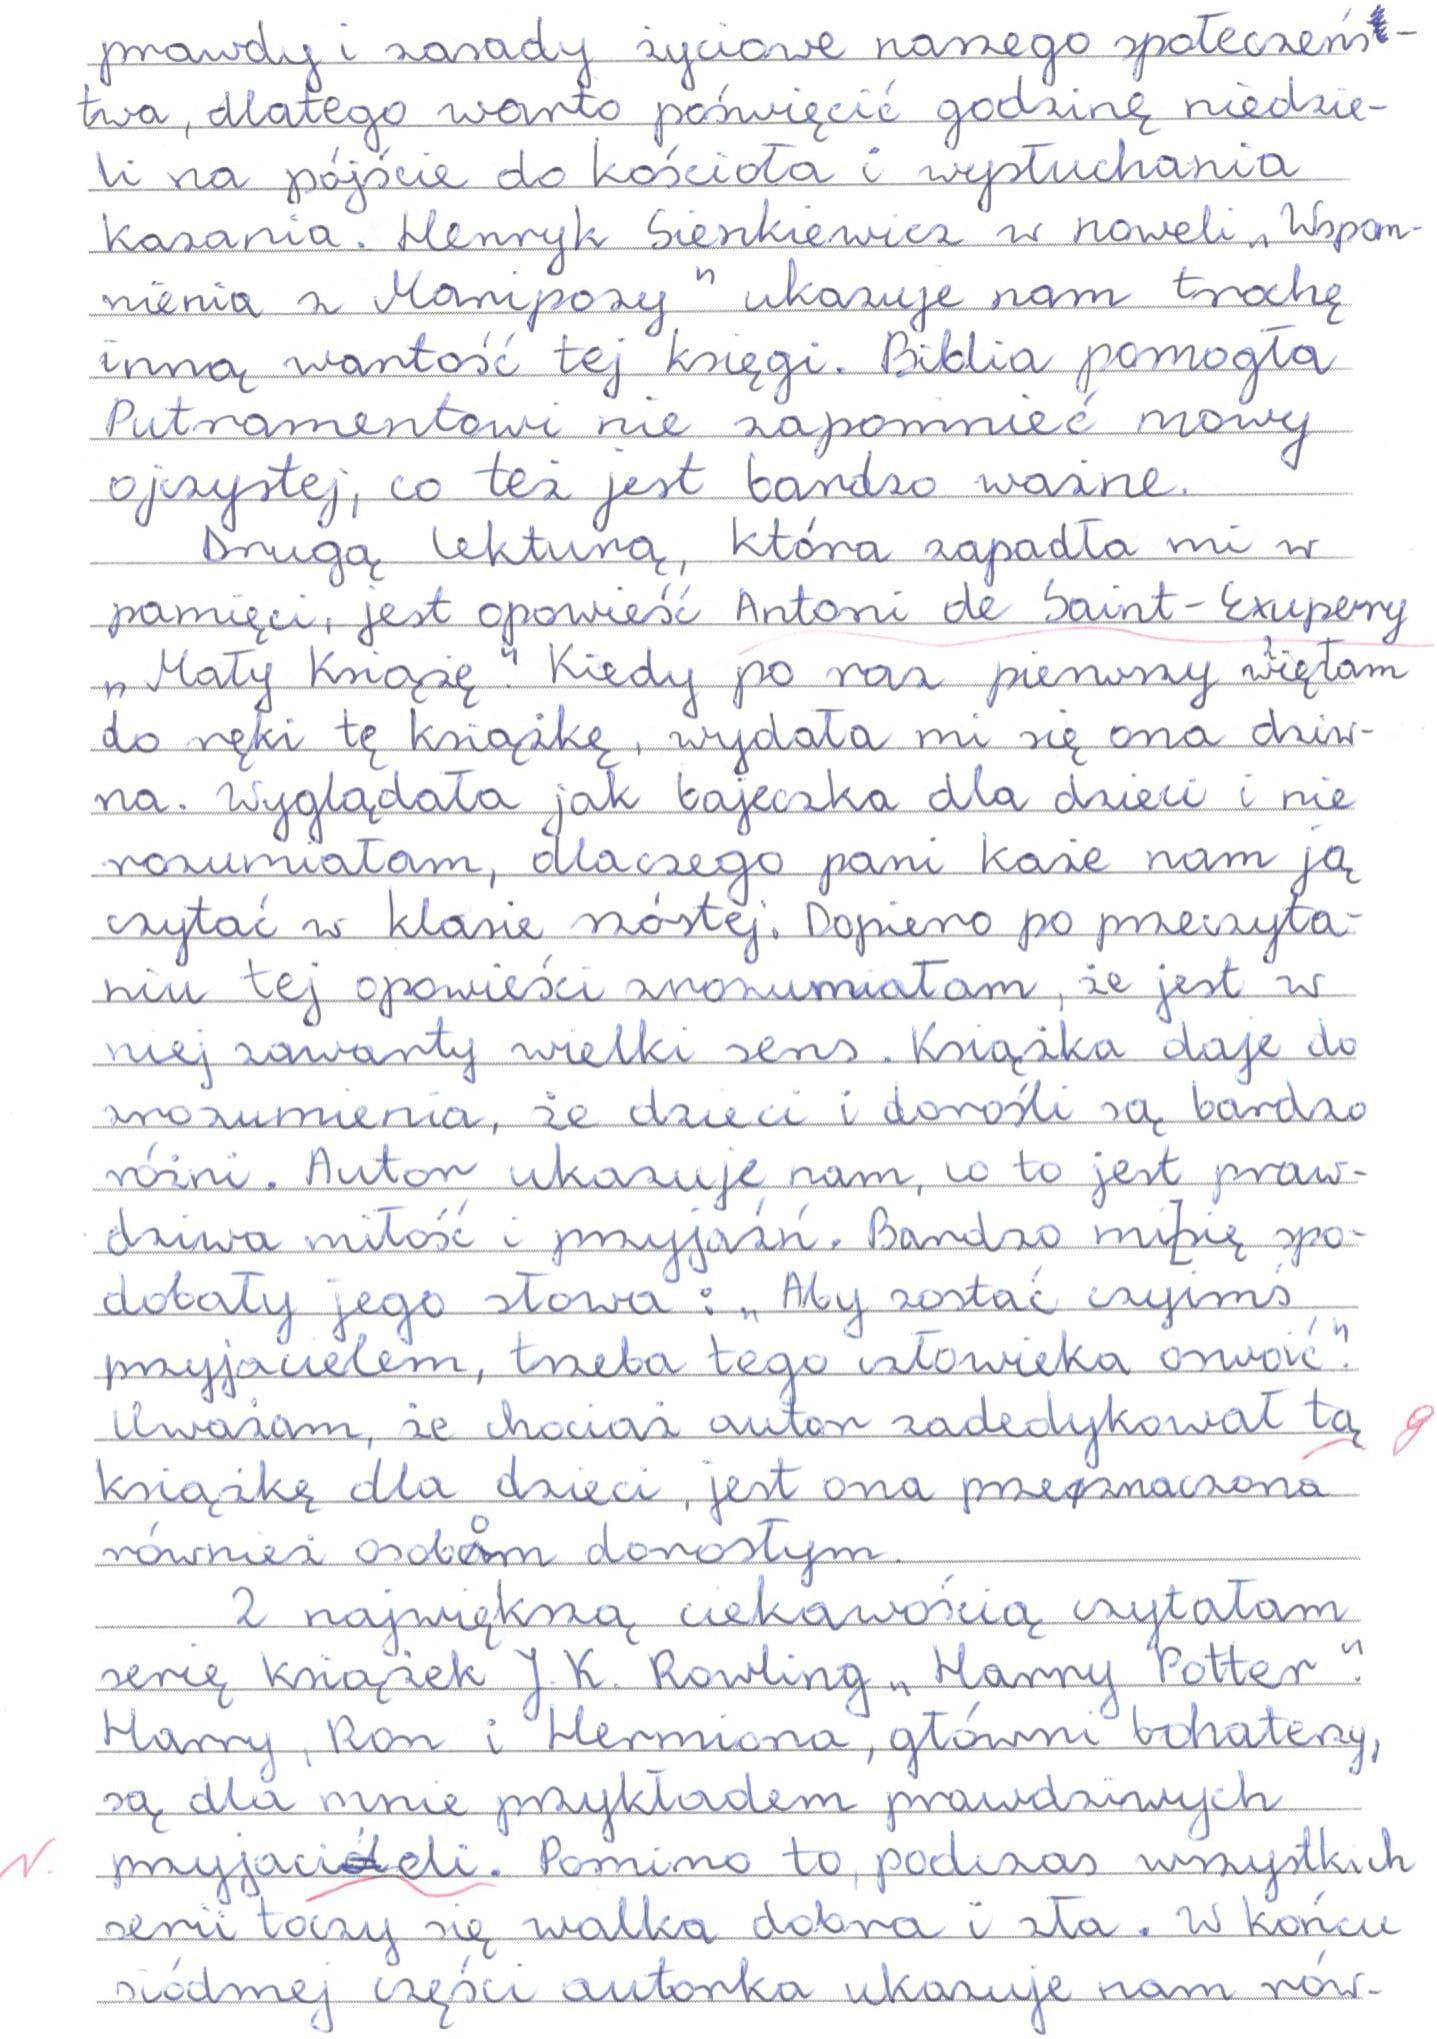 prawdy i zasady życiowe naszego społeczeńs-
twa, dlatego warto poświęcić godzinę niedzie-
li na pójście do kościoła i wysłuchania
kazania. Henryk Sienkiewicz w noweli „Wspom-
nienia z Maripozy" ukazuje nam trochę
inną wartość tej księgi. Biblia pomogła
Putramentowi nie zapomnieć mowy
ojczystej, co też jest bardzo ważne.
Drugą lekturą, która zapadła mi w
pamięci, jest opowieść Antoni de Saint-Exupery
„Mały Książę". Kiedy po raz pierwszy więłam
z
do ręki tę książkę, wydała mi się ona dziw-
na. Wyglądała jak bajeczka dla dzieci i nie
rozumiałam, dlaczego pani każe nam ją
czytać w klasie szóstej. Dopiero po przeczyta-
niu tej opowieści zrozumiałam, że jest w
niej zawarty wielki sens. Książka daje do
zrozumienia, że dzieci i dorośli są bardzo
różni. Autor ukazuje nam, co to jest praw-
dziwa miłość i przyjaźń. Bardzo mi się spo-
dobały jego słowa: „Aby zostać czyimś
przyjacielem, trzeba tego człowieka oswoić".
Uważam, że chociaż autor zadedykował tą g
książkę dla dzieci, jest ona przeznaczona
również osobom dorosłym.
Z największą ciekawością czytałam
serię książek J.K. Rowling „Harry Potter".
Harry, Ron i Hermiona, główni bohaterzy,
są dla mnie przykładem prawdziwych
N. przyjacieli. Pomimo to, podczas wszystkich
serii toczy się walka dobra i zła. W końcu
siódmej części autorka ukazuje nam rów-